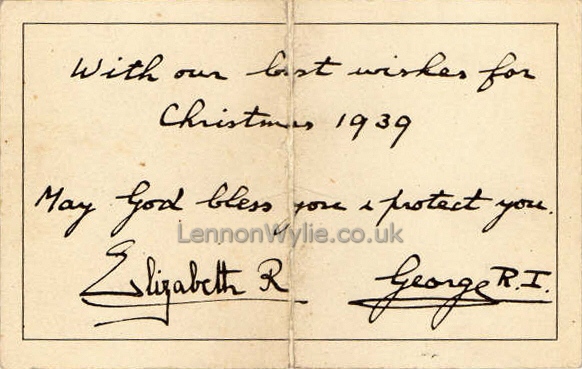 With our best wishes for
Christmas 1939
May God bless you & protect you.
LennonWylie.co.uk
Elizabeth R
George R.I.